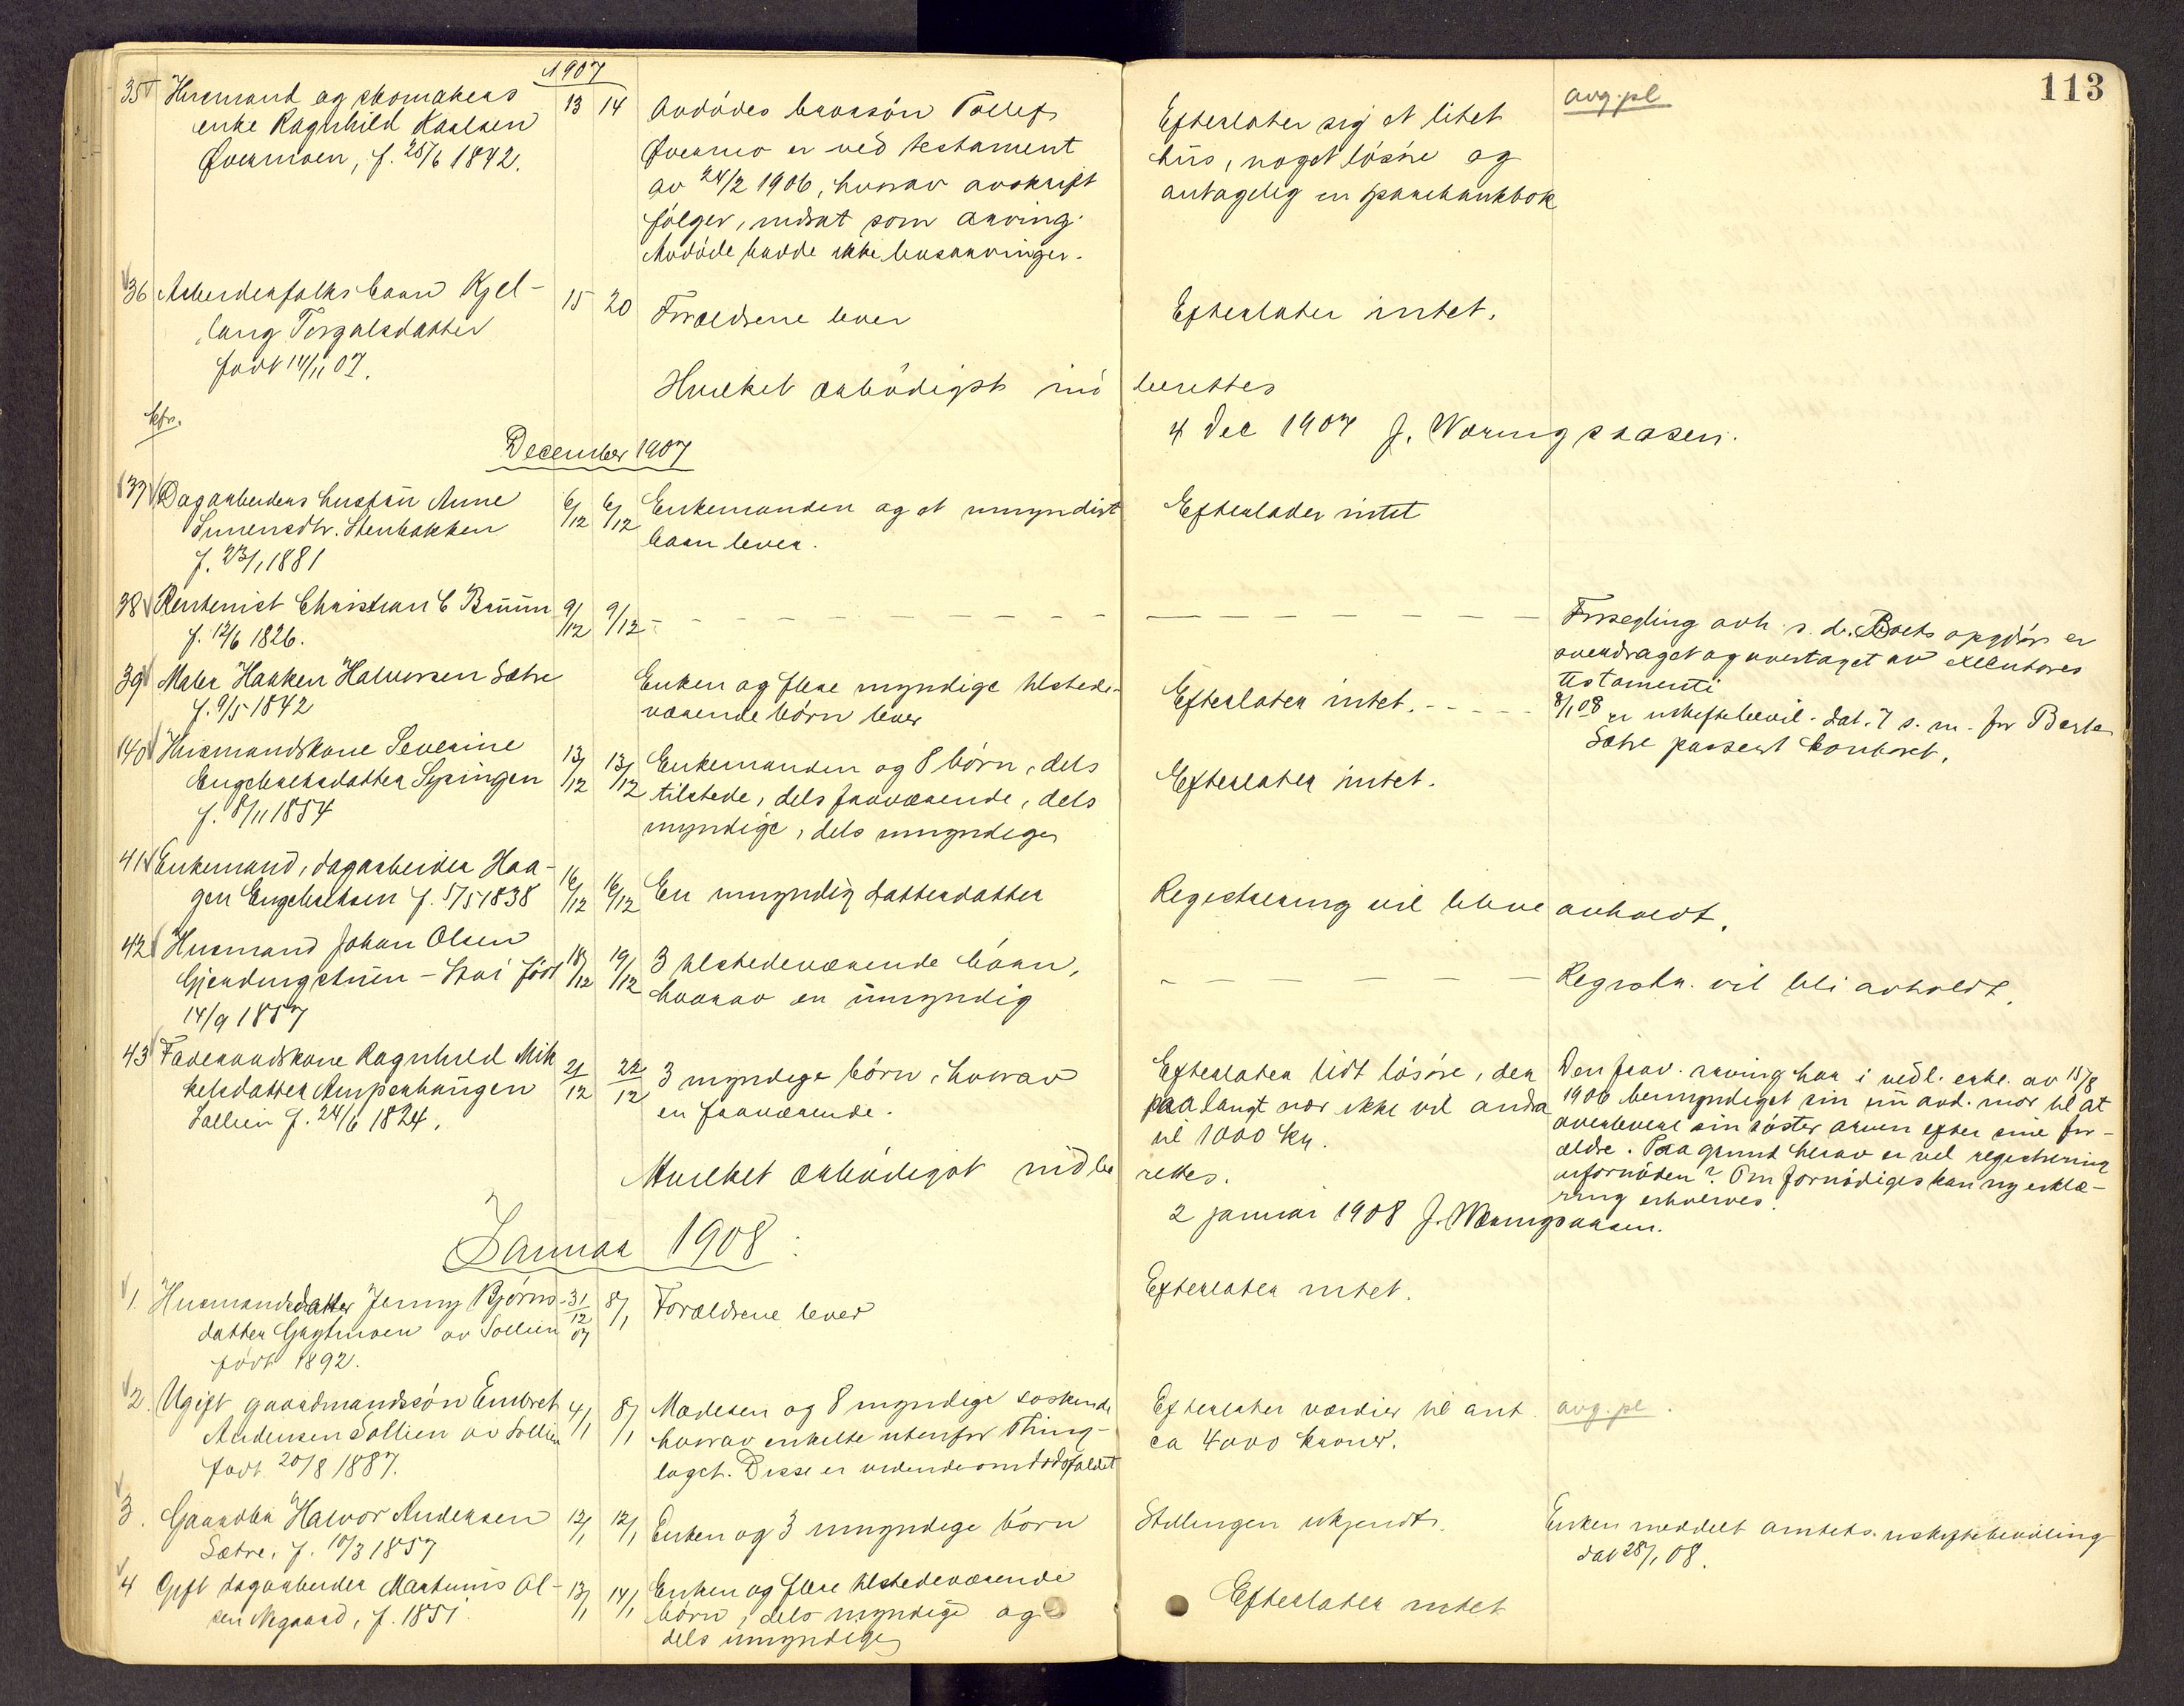 113
1907
35 Husmand og skomakers
enke Ragnhild Karlsen
Øvermoen, f. 25/6 1842.
13 14
Avdødes brorsøn Tollef
Øvermo er ved testament
av 24/2 1906, hvorav avskrift
følger, indsat som arving.
Avdøde havde ikke livsarvinger.
Efterlater sig et litet
hus, noget løsøre og
antagelig en sparebankbok
avg. pl
36 Arbeiderfolks barn Kjel-
laug Torgalsdatter
født 14/11 07.
15 20
Forældrene lever
Efterlater intet.
Hvilket ærbødigst ind berettes
4 Dec 1907 J. Væringsaasen.
kfr.
December 1907
37 Dagarbeiders hustru Anne
Simensdtr. Stenbakken
f. 23/1 1881
6/12 6/12
Enkemanden og et umyndigt
barn lever.
Efterlader intet
38 Rentenist Christian C Bruun
f. 12/6 1826.
9/12 9/12 - - - - - - - -
Forsegling avh. s. d. Boets opgjør er
overdraget og overtaget av executores
testamenti
39 Maler Haaken Halvorsen Sætre
f. 9/5 1842
Enken og flere myndige tilstede-
værende børn lever
Efterlater intet. - - - - -
8/1 08 er uskiftebevil. dat. 7 s. m. for Berte
Sætre passert kontoret.
40 Husmandskone Severine
Engebretsdatter Syringen
f. 8/11 1854
13/12 13/12
Enkemanden og 8 børn, dels
tilstede, dels fraværende, dels
myndige, dels umyndige
Efterlater intet.
41 Enkemand, dagarbeider Haa-
gen Engebretsen f. 5/5 1838
16/12 16/12
En umyndig datterdatter
Registrering vil blive avholdt.
42 Husmand Johan Olsen
Gjerdingstuen - født
14/9 1857
18/12 19/12
3 tilstedeværende børn,
hvorav en umyndig
- - - - - -
Registr. vil bli avholdt.
43 Føderaadskone Ragnhild Mik
kelsdatter Amperhaugen
Sollien f. 24/6 1824.
21/12 22/12
3 myndige børn, hvorav
en fraværende.
Efterlater lidt løsøre, der
paa langt nær ikke vil andra
til 1000 Kr.
Den frav. arving har i vedl. erkl. av 15/8
1906 bemyndiget sin nu avd. mor til at
overlevere sin søster arven efter sine for-
ældre. Paa grund herav er vel registrering
ufornøden? Om fornødiges kan ny erklæ-
ring erhverves.
Hvilket ærbødigst indbe rettes.
2 januar 1908 J. Væringsaasen.
Januar 1908:
1. Husmandsdatter Jenny Bjørns-
datter av Sollien
født 1892.
31/12 07 8/1
Forældrene lever
Efterlater intet.
2. Ugift gaardmandssøn Embret
Andersen Sollien av Sollien
født 20/8 1887.
4/1 8/1
Moderen og 8 myndige søskende
hvorav enkelte utenfor Thing-
laget. Disse er vidende om dødsfaldet
Efterlater værdier til ant.
ca 4000 kroner.
avg. pl.
3. Gaardbr. Halvor Andersen
Sætre, f. 10/3 1857
12/1 12/1
Enken og 3 umyndige børn
Stillingen ukjendt.
Enken meddelt amtets uskiftebevilling
dat 28/1 08.
4 Gift dagarbeider Martinus Ol-
sen Nygaard, f. 1851.
13/1 14/1
Enken og flere tilstedeværende
børn, dels myndige og
dels umyndige
Efterlater intet